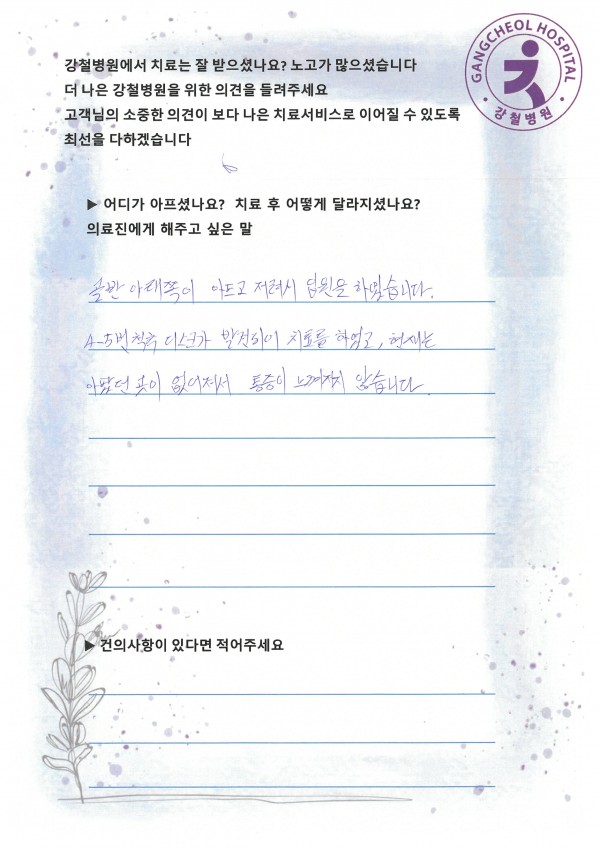 GANGCHEOL HOSPITAL
강철병원
강철병원에서 치료는 잘 받으셨나요? 노고가 많으셨습니다
더 나은 강철병원을 위한 의견을 들려주세요
고객님의 소중한 의견이 보다 나은 치료서비스로 이어질 수 있도록
최선을 다하겠습니다
▶ 어디가 아프셨나요? 치료 후 어떻게 달라지셨나요?
의료진에게 해주고 싶은 말
골반 아래쪽이 아프고 저려서 입원을 하였습니다.
4-5번 척추 디스크가 발견되어 치료를 하였고, 현재는
아팠던 곳이 없어져서 통증이 느껴지지 않습니다.
▶ 건의사항이 있다면 적어주세요